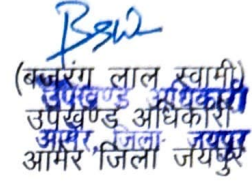 (बजरंग लाल स्वामी)
उपखण्ड अधिकारी
उपखण्ड अधिकारी
आमेर, जिला- जयपुर
आमेर जिला जयपुर